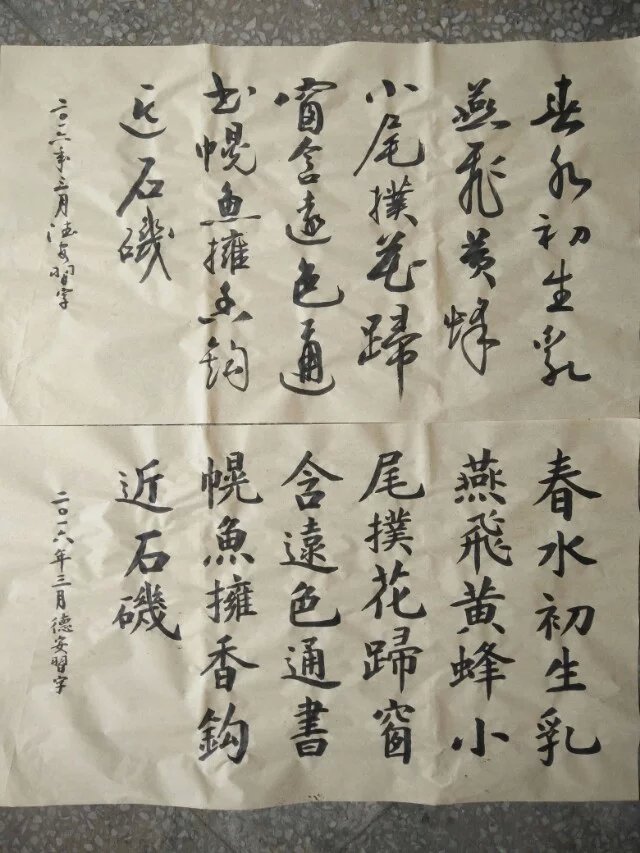 春水初生乳
燕飛黄蜂
小尾撲花歸
窗含遠色通
書幌魚擁香鈎
近石磯
二〇一六年三月德安習字
春水初生乳
燕飛黄蜂小
尾撲花歸窗
含遠色通書
幌魚擁香鈎
近石磯
二〇一六年三月德安習字